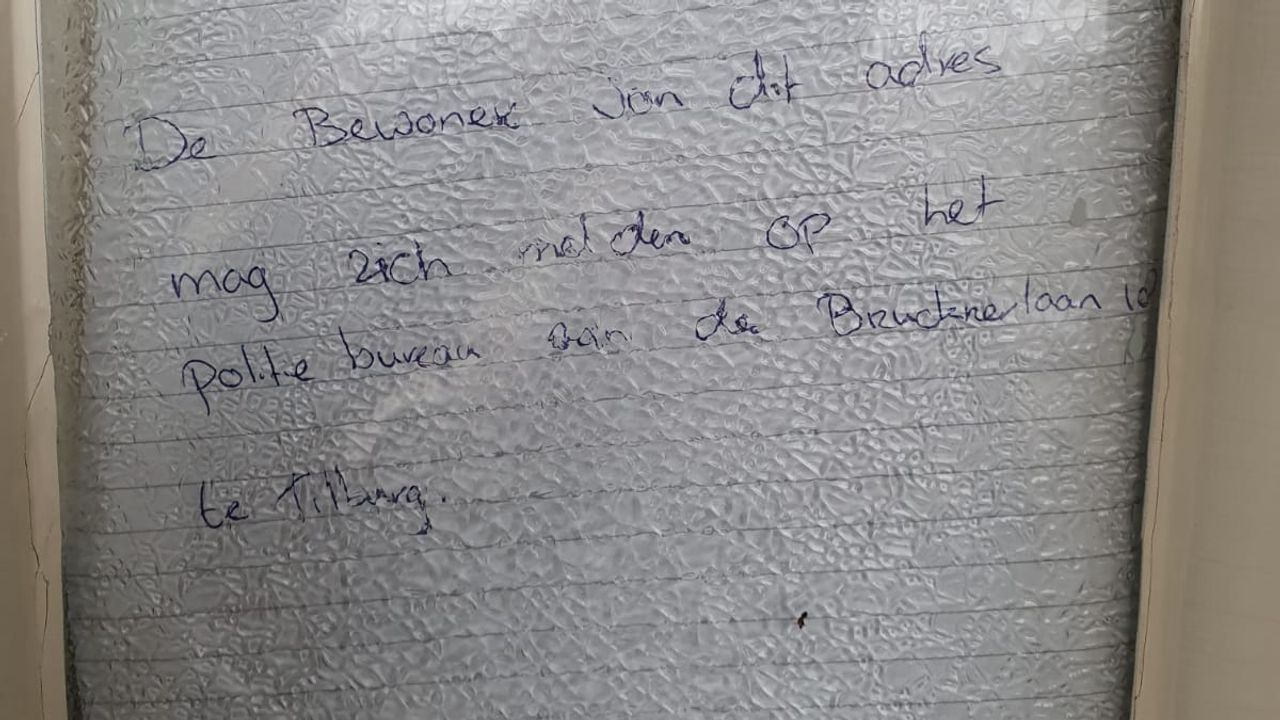 De Bewoner van dit adres
mag zich melden op het
politie bureau aan de Brucknerlaan
te Tilburg.